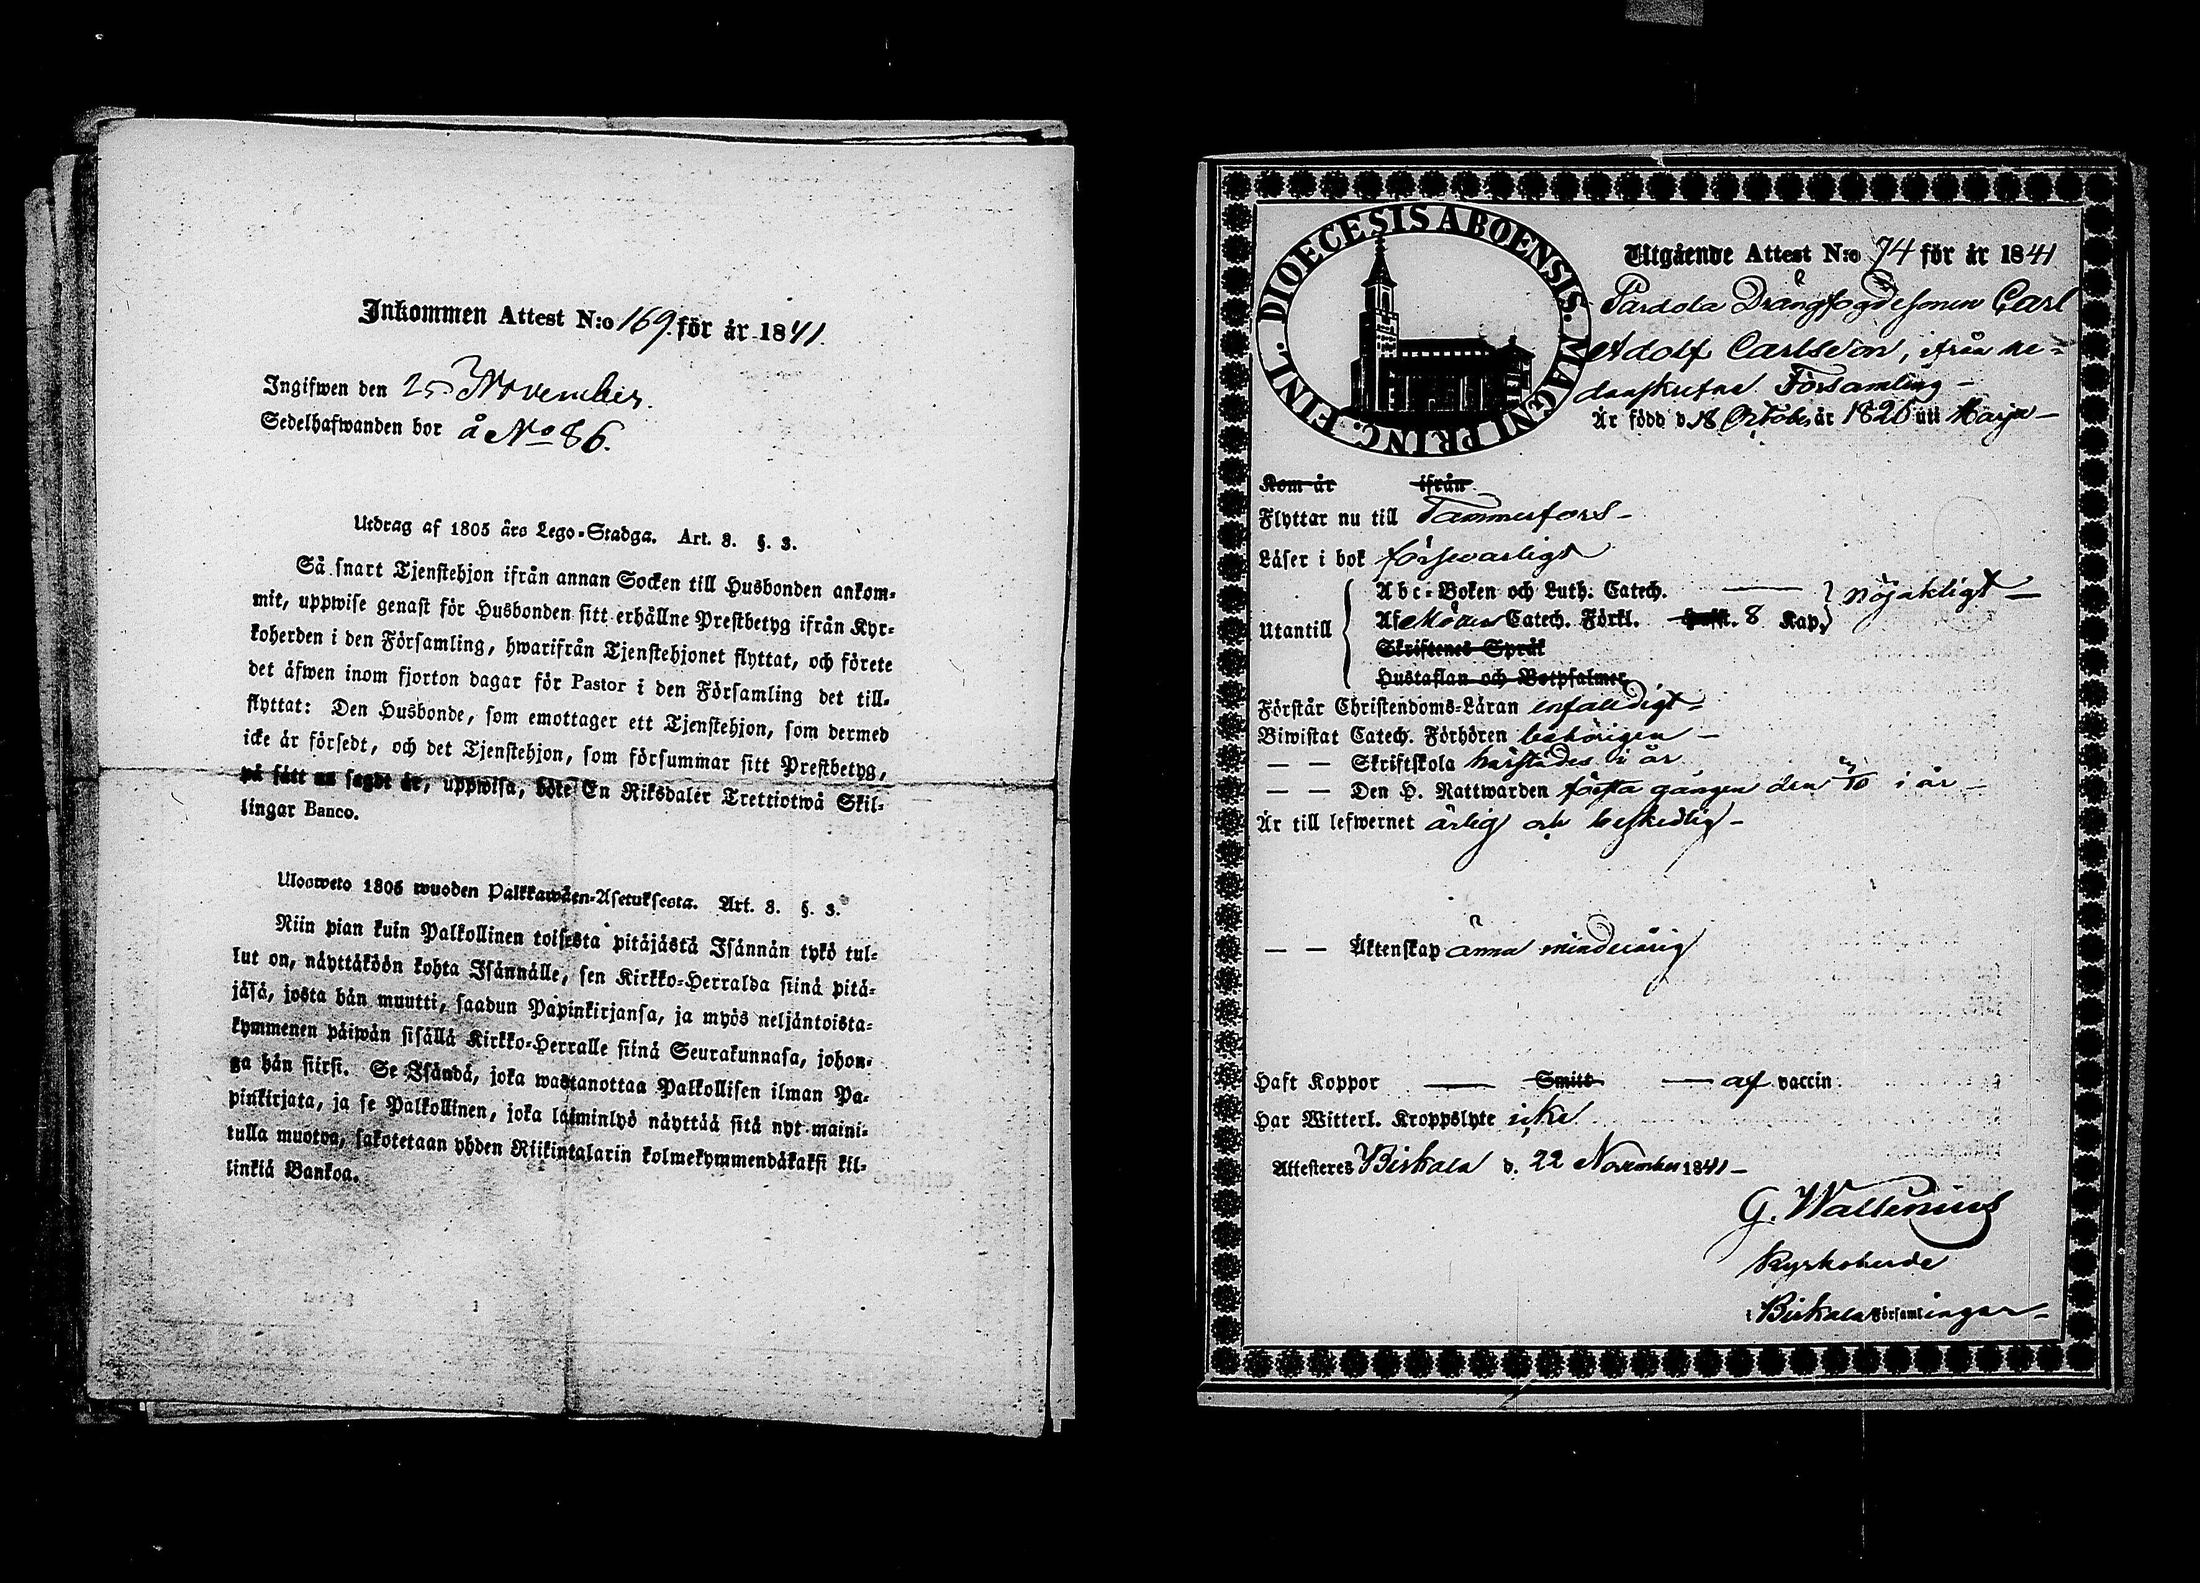 Inkommen Attest N:o 169. för år 1841.
Ingifwen den 25 November.
Sedelhafwanden bor å No 86.
Utdrag af 1805 års Lego-Stadga. Art. 8. §. 3.
Så snart Tjenstehjon ifrån annan Socken till Husbonden ankom-
mit, uppwise genast för Husbonden sitt erhållne Prestbetyg ifrån Kyr-
koherden i den Församling, hwarifrån Tjenstehjonet flyttat, och förete
det äfwen inom fjorton dagar för Pastor i den Församling det till-
flyttat: Den Husbonde, som emottager ett Tjenstehjon, som dermed
icke är försedt, och det Tjenstehjon, som försummar sitt Prestbetyg,
på sätt nu sagdt är, uppwisa, böte En Riksdaler Trettiotwå Skil-
lingar Banco.
Uloosweto 1805 wuoden Palkkawäen-Asetuksesta. Art. 8. §. 3.
Niin pian kuin Palkollinen toisesta pitäjästä Isännän tykö tul-
lut on, näyttäköön kohta Isännälle, sen Kirkko-Herralda siinä pitä-
jäsä, josta hän muutti, saadun Papinkirjansa, ja myös neljäntoista-
kymmenen päiwän sisällä Kirkko-Herralle siinä Seurakunnasa, johon-
ga hän siirsi. Se Isändä, joka wastanottaa Palkollisen ilman Pa-
pinkirjata, ja se Palkollinen, joka laiminlyö näyttää sitä nyt maini-
tulla muotoa, sakotetaan yhden Riikintalarin kolmekymmendäkaksi kil-
linkiä Bankoa.
DIOECESIS ABOENSIS. MAGNI PRINC. FINL.
Utgående Attest N:o 74 för år 1841
Pardola Drängfogdesonen Carl
Adolf Carlsson, ifrån ne-
danskrefne Församling –
Är född d. 18 Octob. år 1826 uti Harju –
Kom år ifrån
Flyttar nu till Tammerfors –
Läser i bok försvarligt
Utantill
Abc-Boken och Luth. Catech. ——
Af Möllers Catech. Förkl. 8 Kap. } nöjaktligt –
Skriftenes Språk
Hustaflan och Botpsalmer
Förstår Christendoms-Läran enfaldigt –
Biwistat Catech. Förhören behörigen –
— — Skriftskola härstädes i år
— — Den H. Nattwarden första gången den /10 i år –
Är till lefwernet ärlig och beskedlig –
— — Äktenskap änna minderårig
Haft Koppor —— Smitt —— af vaccin
Har Witterl. Kroppslyte icke
Attesteres Birkala d. 22 November 1841 –
G. Wallenius
Kyrkoherde
i Birkala Församlingar –